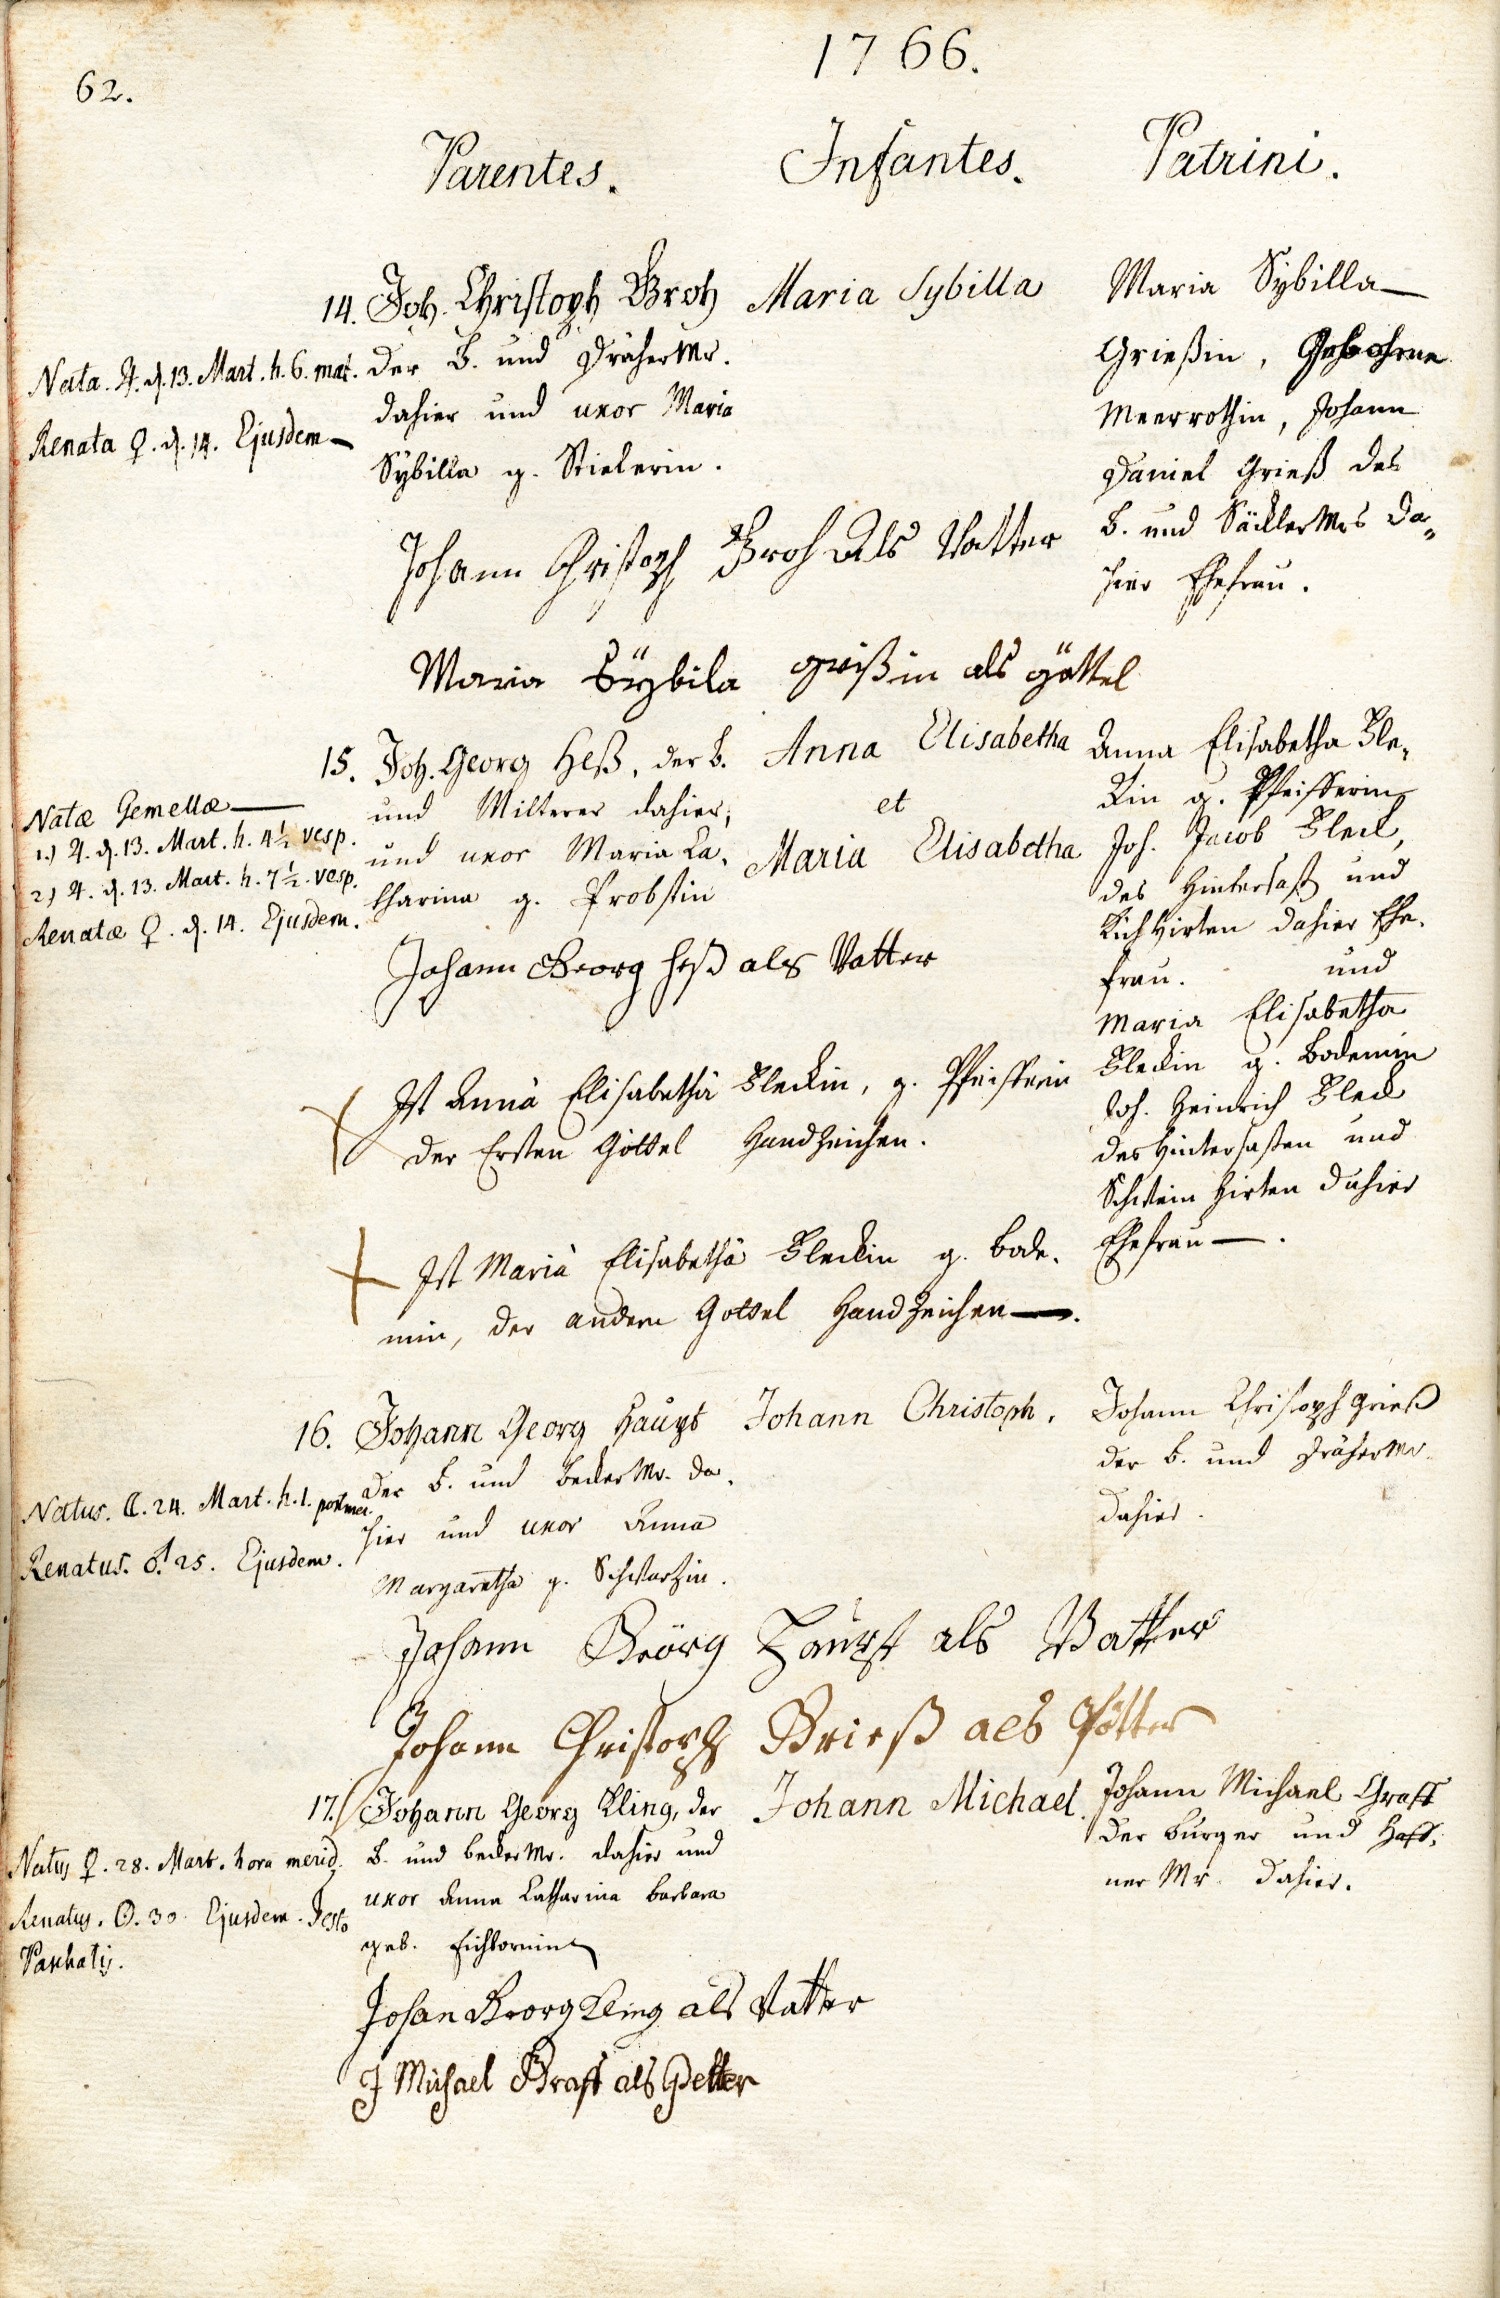 1766.
62.
Parentes.
Infantes.
Patrini.
14. Joh. Christoph Groh
der B. und Dräher Mr.
dahier und uxor Maria
Sybilla g. Stielerin.
Nata. ♃. d. 13. Mart. h. 6. mat.
Renata ♀. d. 14. Ejusdem
Maria Sybilla
Maria Sybilla
Grießin, Gebohrne
Meerrothin, Johann
Daniel Grieß des
B. und Säcklers Mrs da„
hier Ehefrau.
Johann Christoph Groh Als Vatter
Maria Sÿbila grißin als göttel
15. Joh. Georg Heß, der B.
und Milterer dahier,
und uxor Maria Ca„
tharina g. Probstin
Natæ Gemellæ
1.) ♃. d. 13. Mart. h. 4½ vesp.
2.) ♃. d. 13. Mart. h. 7½. vesp.
Renatæ ♀. d. 14. Ejusdem.
Anna Elisabetha
et
Maria Elisabetha
Anna Elisabetha Ble„
ckin g. Pfeifferin
Joh. Jacob Bleck,
des Hintersaß und
Kühhirten dahier Ehe„
frau. und
Maria Elisabetha
Bleckin g. Bodemin
Joh. Heinrich Bleck
des Hintersaßen und
Schwein Hirten dahier
Ehefrau.
Johann Georg heß als Vatter
Ist Annä Elisabethä Bleckin, g. Pfeifferin
der Ersten Göttel Handzeichen.
Ist Mariä Elisabethä Bleckin g. Bode„
min, der andern Gottel Handzeichen.
16. Johann Georg Haupt
der B. und Becker Mr. da„
hier und uxor Anna
Margaretha g. Schwartzin.
Natus. ☾. 24. Mart. h. 1. postmer.
Renatus. ♂. 25. Ejusdem.
Johann Christoph.
Johann Christoph Grieß
der B. und Dräher Mr.
dahier.
Johann Geörg Haupt als Vatter
Johann Christoph Grieß als Götter
17. Johann Georg Kling, der
B. und Becker Mr. dahier und
uxor Anna Catharina Barbara
geb. Eichhornin
Natus ♀. 28. Mart. hora merid.
Renatus. ☉. 30. Ejusdem. Festo
Paschatis.
Johann Michael.
Johann Michael Graff
der Burger und Haff„
ner Mr. dahier.
Johan Georg Kling als Vatter
J Michael Graff als Getter